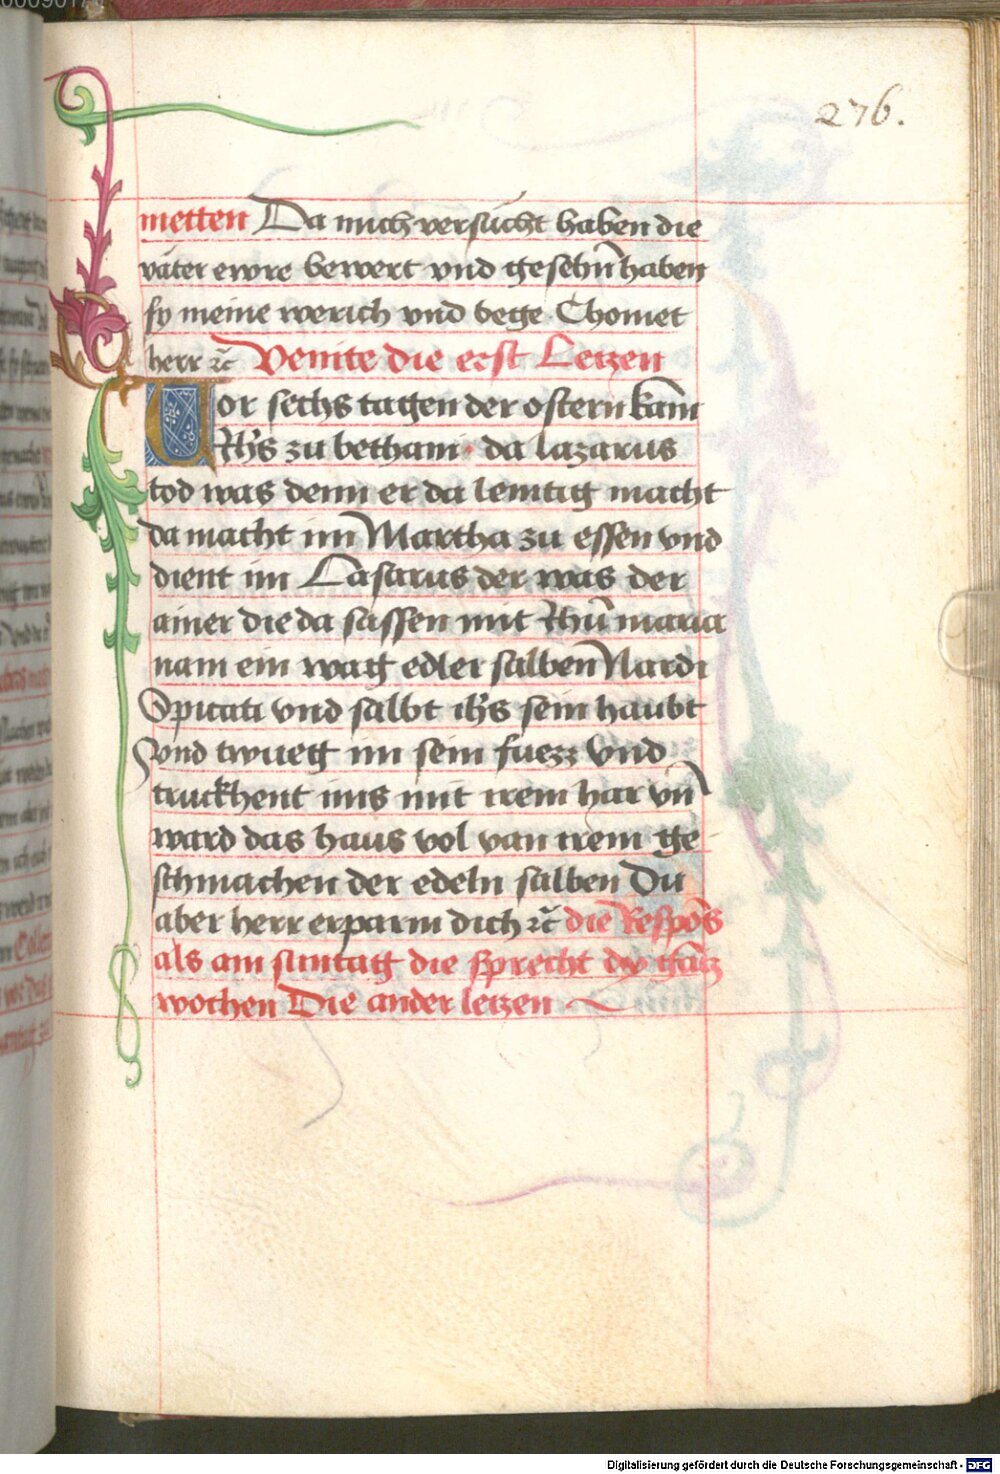 276.
metten Da mich versücht haben die
väter ewre bewert vnd gesehn̄ haben
sy meine werich vnd bege Chomet
herr ꝛc̄ Venite die erst Leczen
Vor sechs tagen der ostern kam̄
Jh̄s zu bethani · da lazarus
tod was denn er da lemtig macht
da macht im Martha zu essen vnd
dient im Lasarus der was der
ainer die da sassen mit Jhū maria
nam ein wag edler salben Nardi
Spicati vnd salbt ih̄s sein haubt
vnd twueg im sein fuezz vnd
truckhent ims mit irem har vn̄
ward das haus vol van irem ge
schmachen der edeln salben Du
aber herr erparm dich ꝛc̄ die Respōs
als am suntag die sprecht dy gācz
wochen Die ander leczen
Digitalisierung gefördert durch die Deutsche Forschungsgemeinschaft - DFG